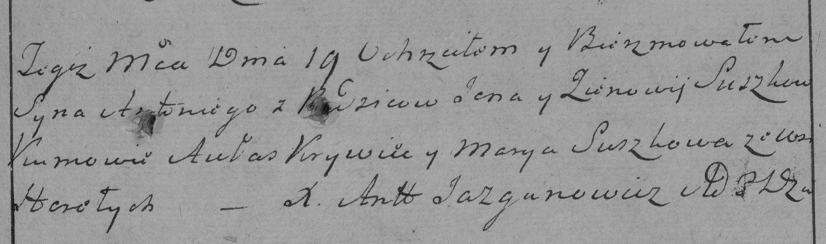 Tegiż Mca Dnia 19 Ochrzciłem y Bierzmowałem
Syna Antoniego z Rodzicow Jana y Zienowij Suszkow
Kumowie Aułas Krywiec y Marya Suszkowa ze wsi
Horołych — X. Antt Jazgunowicz